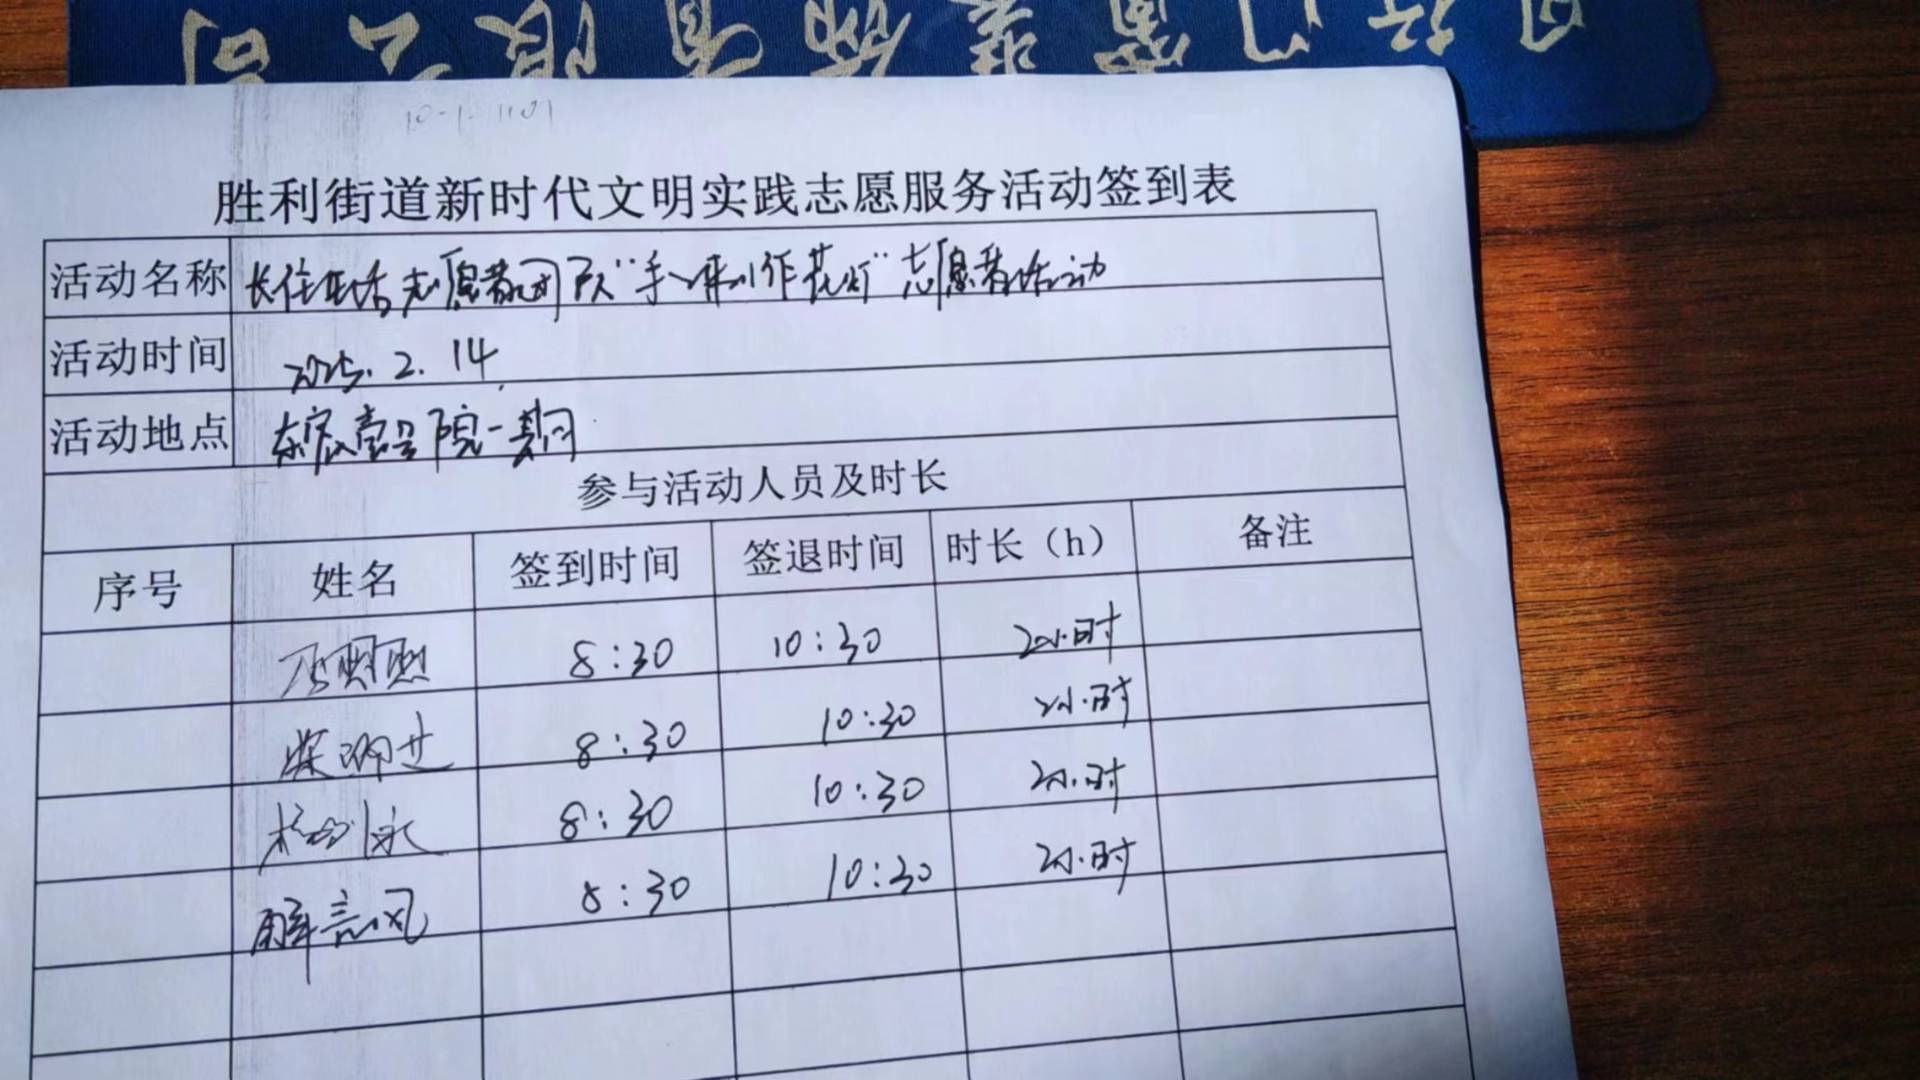 10-1. 1101
胜利街道新时代文明实践志愿服务活动签到表
活动名称 长住生活志愿者团队"手工制作花灯"志愿者活动
活动时间 2025.2.14
活动地点 东宸壹号院一期
参与活动人员及时长
序号 姓名 签到时间 签退时间 时长（h） 备注
8:30 10:30 2小时
8:30 10:30 2小时
8:30 10:30 2小时
解志凤 8:30 10:30 2小时